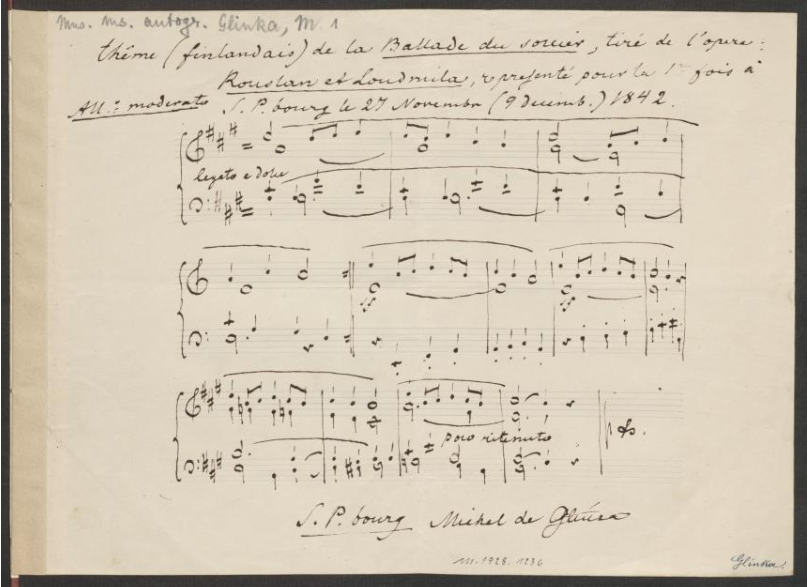 Mus. ms. autogr. Glinka, M. 1
thême (finlandais) de la Ballade du sorcier, tiré de l'opera:
Rouslan et Loudmila, representé pour la 1re fois à
All.o moderato S. P. bourg le 27 Novembr (9 decemb.) 1842.
legato e dolce
poco ritenuto
S. P. bourg Michel de Glinka
M. 1928. 1236
Glinka.